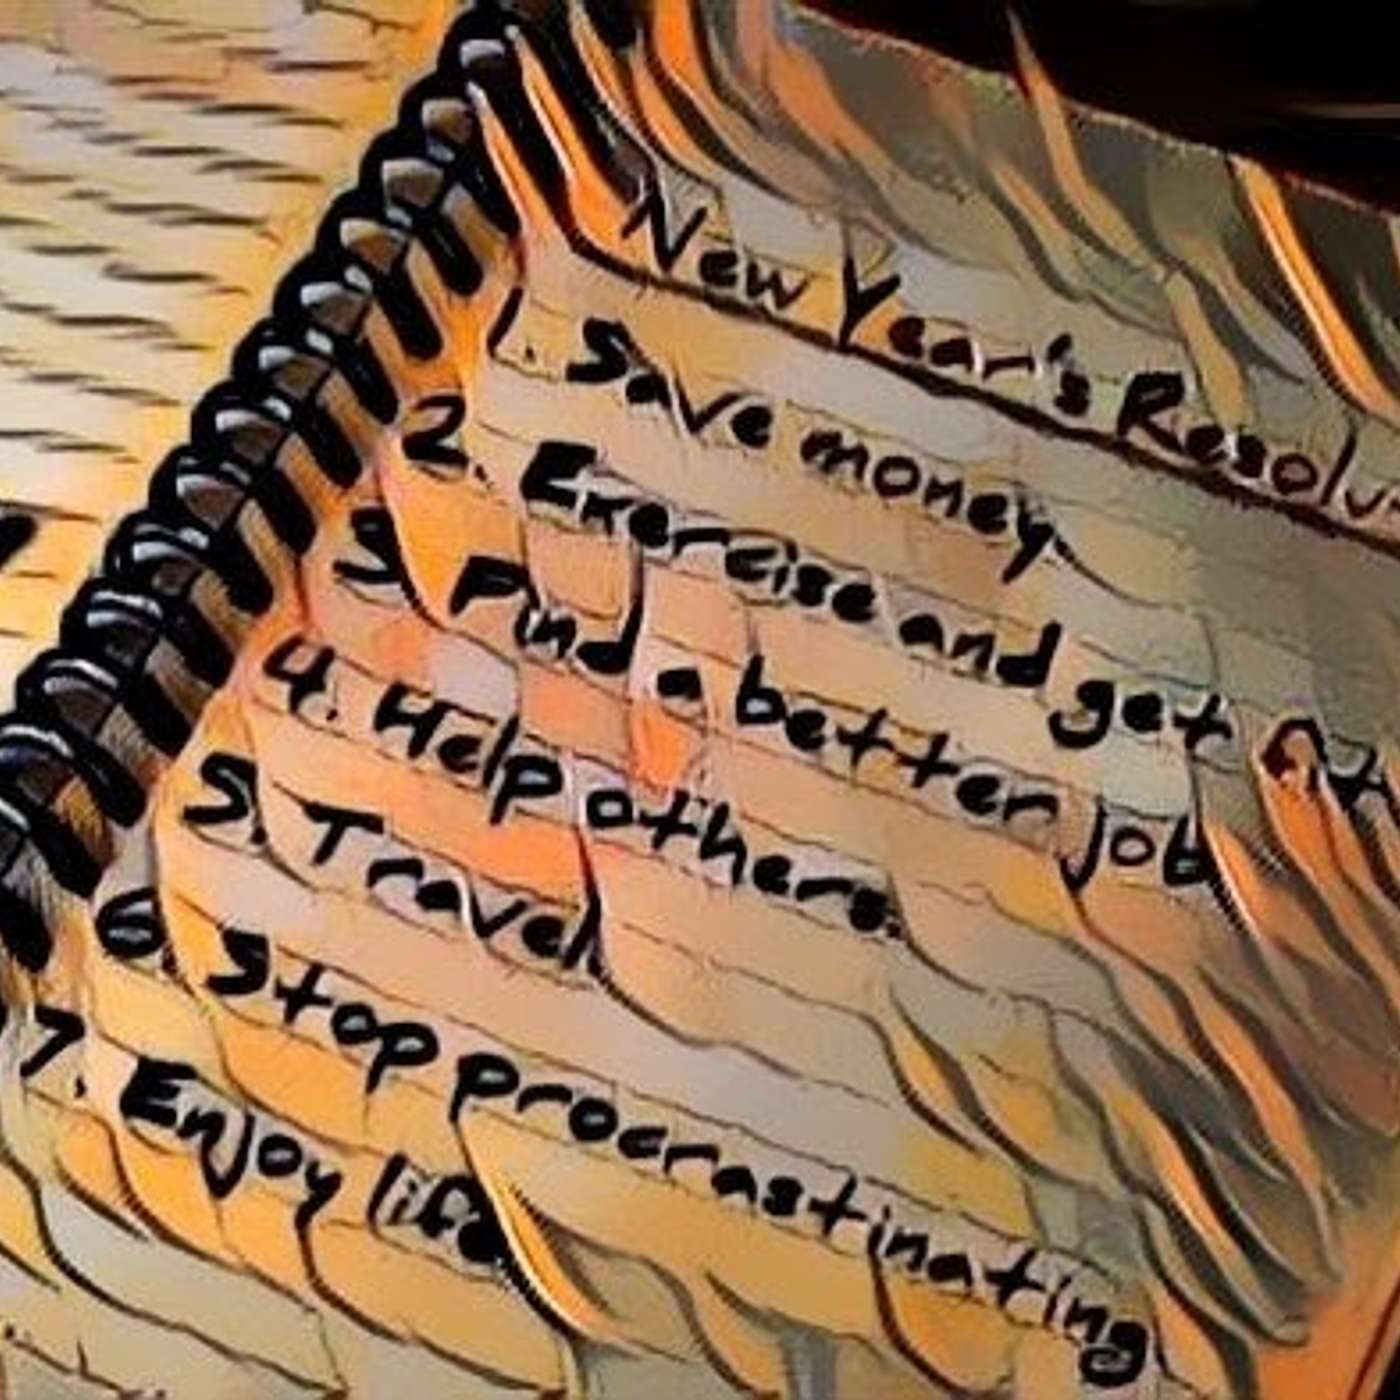 New Year's Resolu
1. Save money
2. Exercise and get fit
3. Find a better job
4. Help others
5. Travel
6. Stop procrastinating
7. Enjoy life